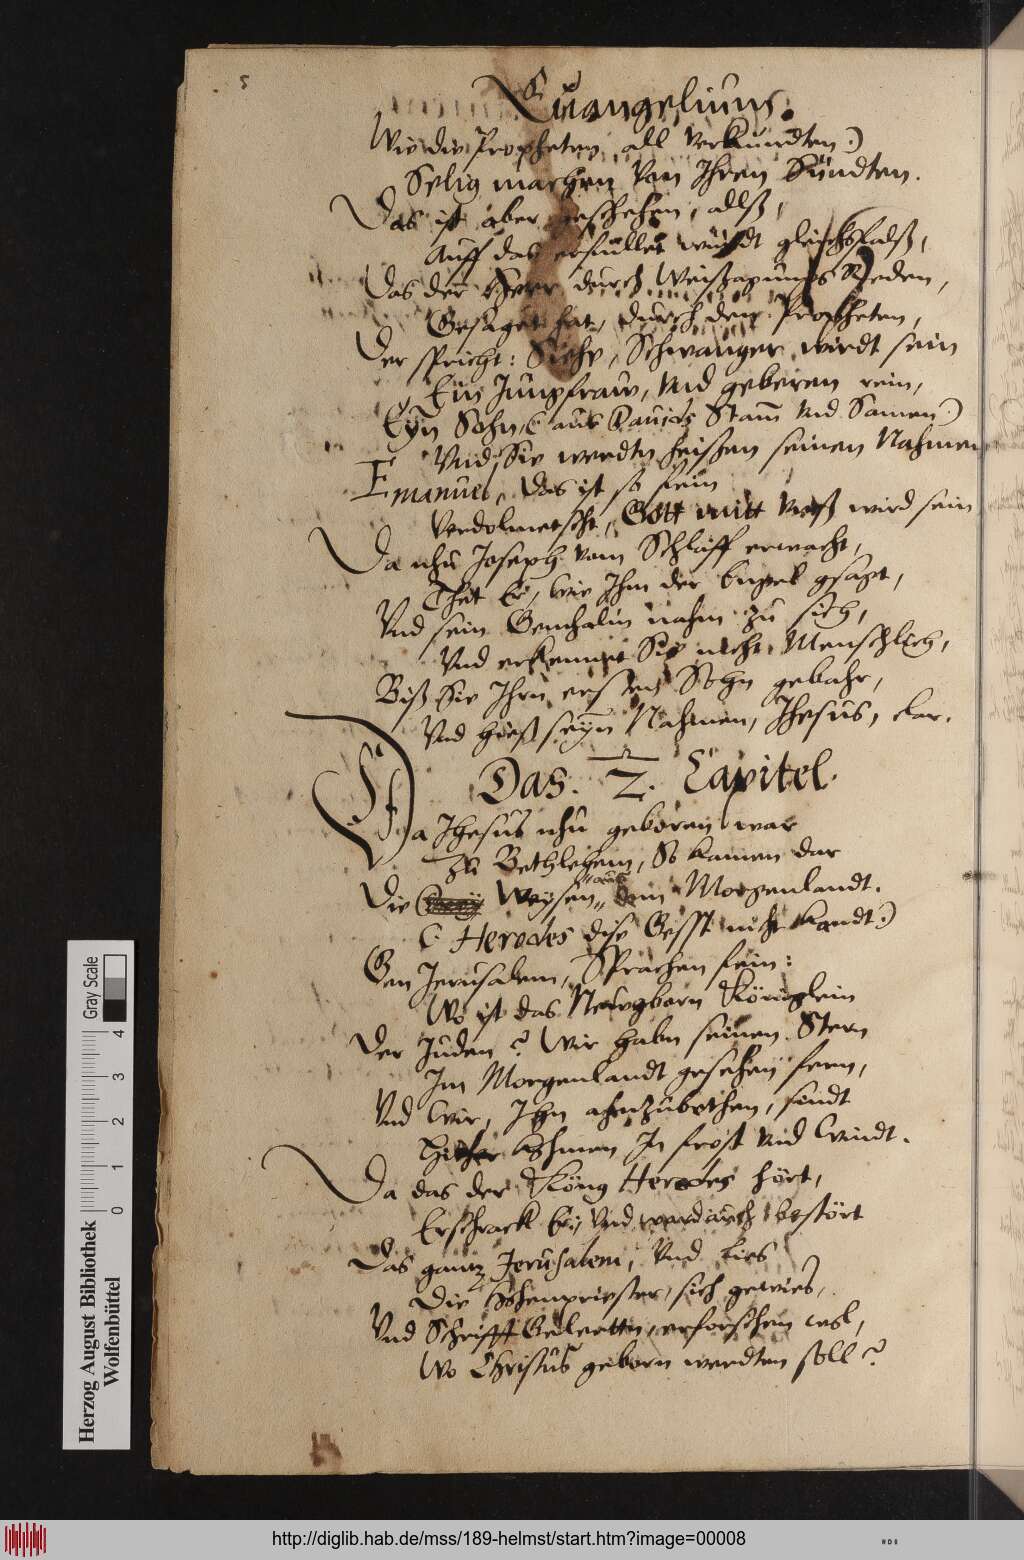 5
Euangelium.
Wie die Propheten all verkundten)
Selig machen von Ihren Sündten.
Das ist aber geschehen, allß,
Auff das erfüllet würdt gleichsfalß,
Das der Herr durch Weißagungs Reden,
Gesaget hat, durch den Propheten,
Der spricht: Siehe, Schwanger wirdt sein
Ein Jungfraw, vnd geberen rein,
Eyn Sohn, (aus Dauids Stam vnd Samen)
Vnd Sie werdtn heißen seinen Nahmen
Emanuel, das ist so fein
Verdolmetscht, Gott mitt vnß wird sein
Da nhu Joseph vom Schlaff erwacht,
Thet Er, wie Ihm der Engel gsagt,
Vnd sein Gemhalin nahm zu sich,
Vnd erkennet Sie nicht Menschlich,
Biß Sie Ihrn ersten Sohn gebahr,
Vnd hieß seyn Nahmen, Jhesus, klar.
Das. 2. Capitel.
Da Jhesus nhu geboren war
Zu Bethlehem, So kamen dar
Die Weysen auß dem Morgenlandt.
(Herodes dise Gesst nicht kandt)
Gen Jerusalem, Sprachen fein:
Wo ist das Newgborn Königlein
Der Juden? Wir habn seinen Stern
Im Morgenlandt gesehen fern,
Vnd wir, Ihn ahnzubethen, sindt
Hieher kohmen In frost vnd windt.
Da das der König Herodes hört,
Erschrack Er, vnd ward auch bestört
Das gantz Jerusalem, Vnd lies
Die Hohenpriester, sich gewies,
Vnd Schrifft Gelertten, erforschen wol,
Wo Christus geborn werdten soll?
Herzog August Bibliothek
Wolfenbüttel
0 1 2 3 4
Gray Scale
http://diglib.hab.de/mss/189-helmst/start.htm?image=00008